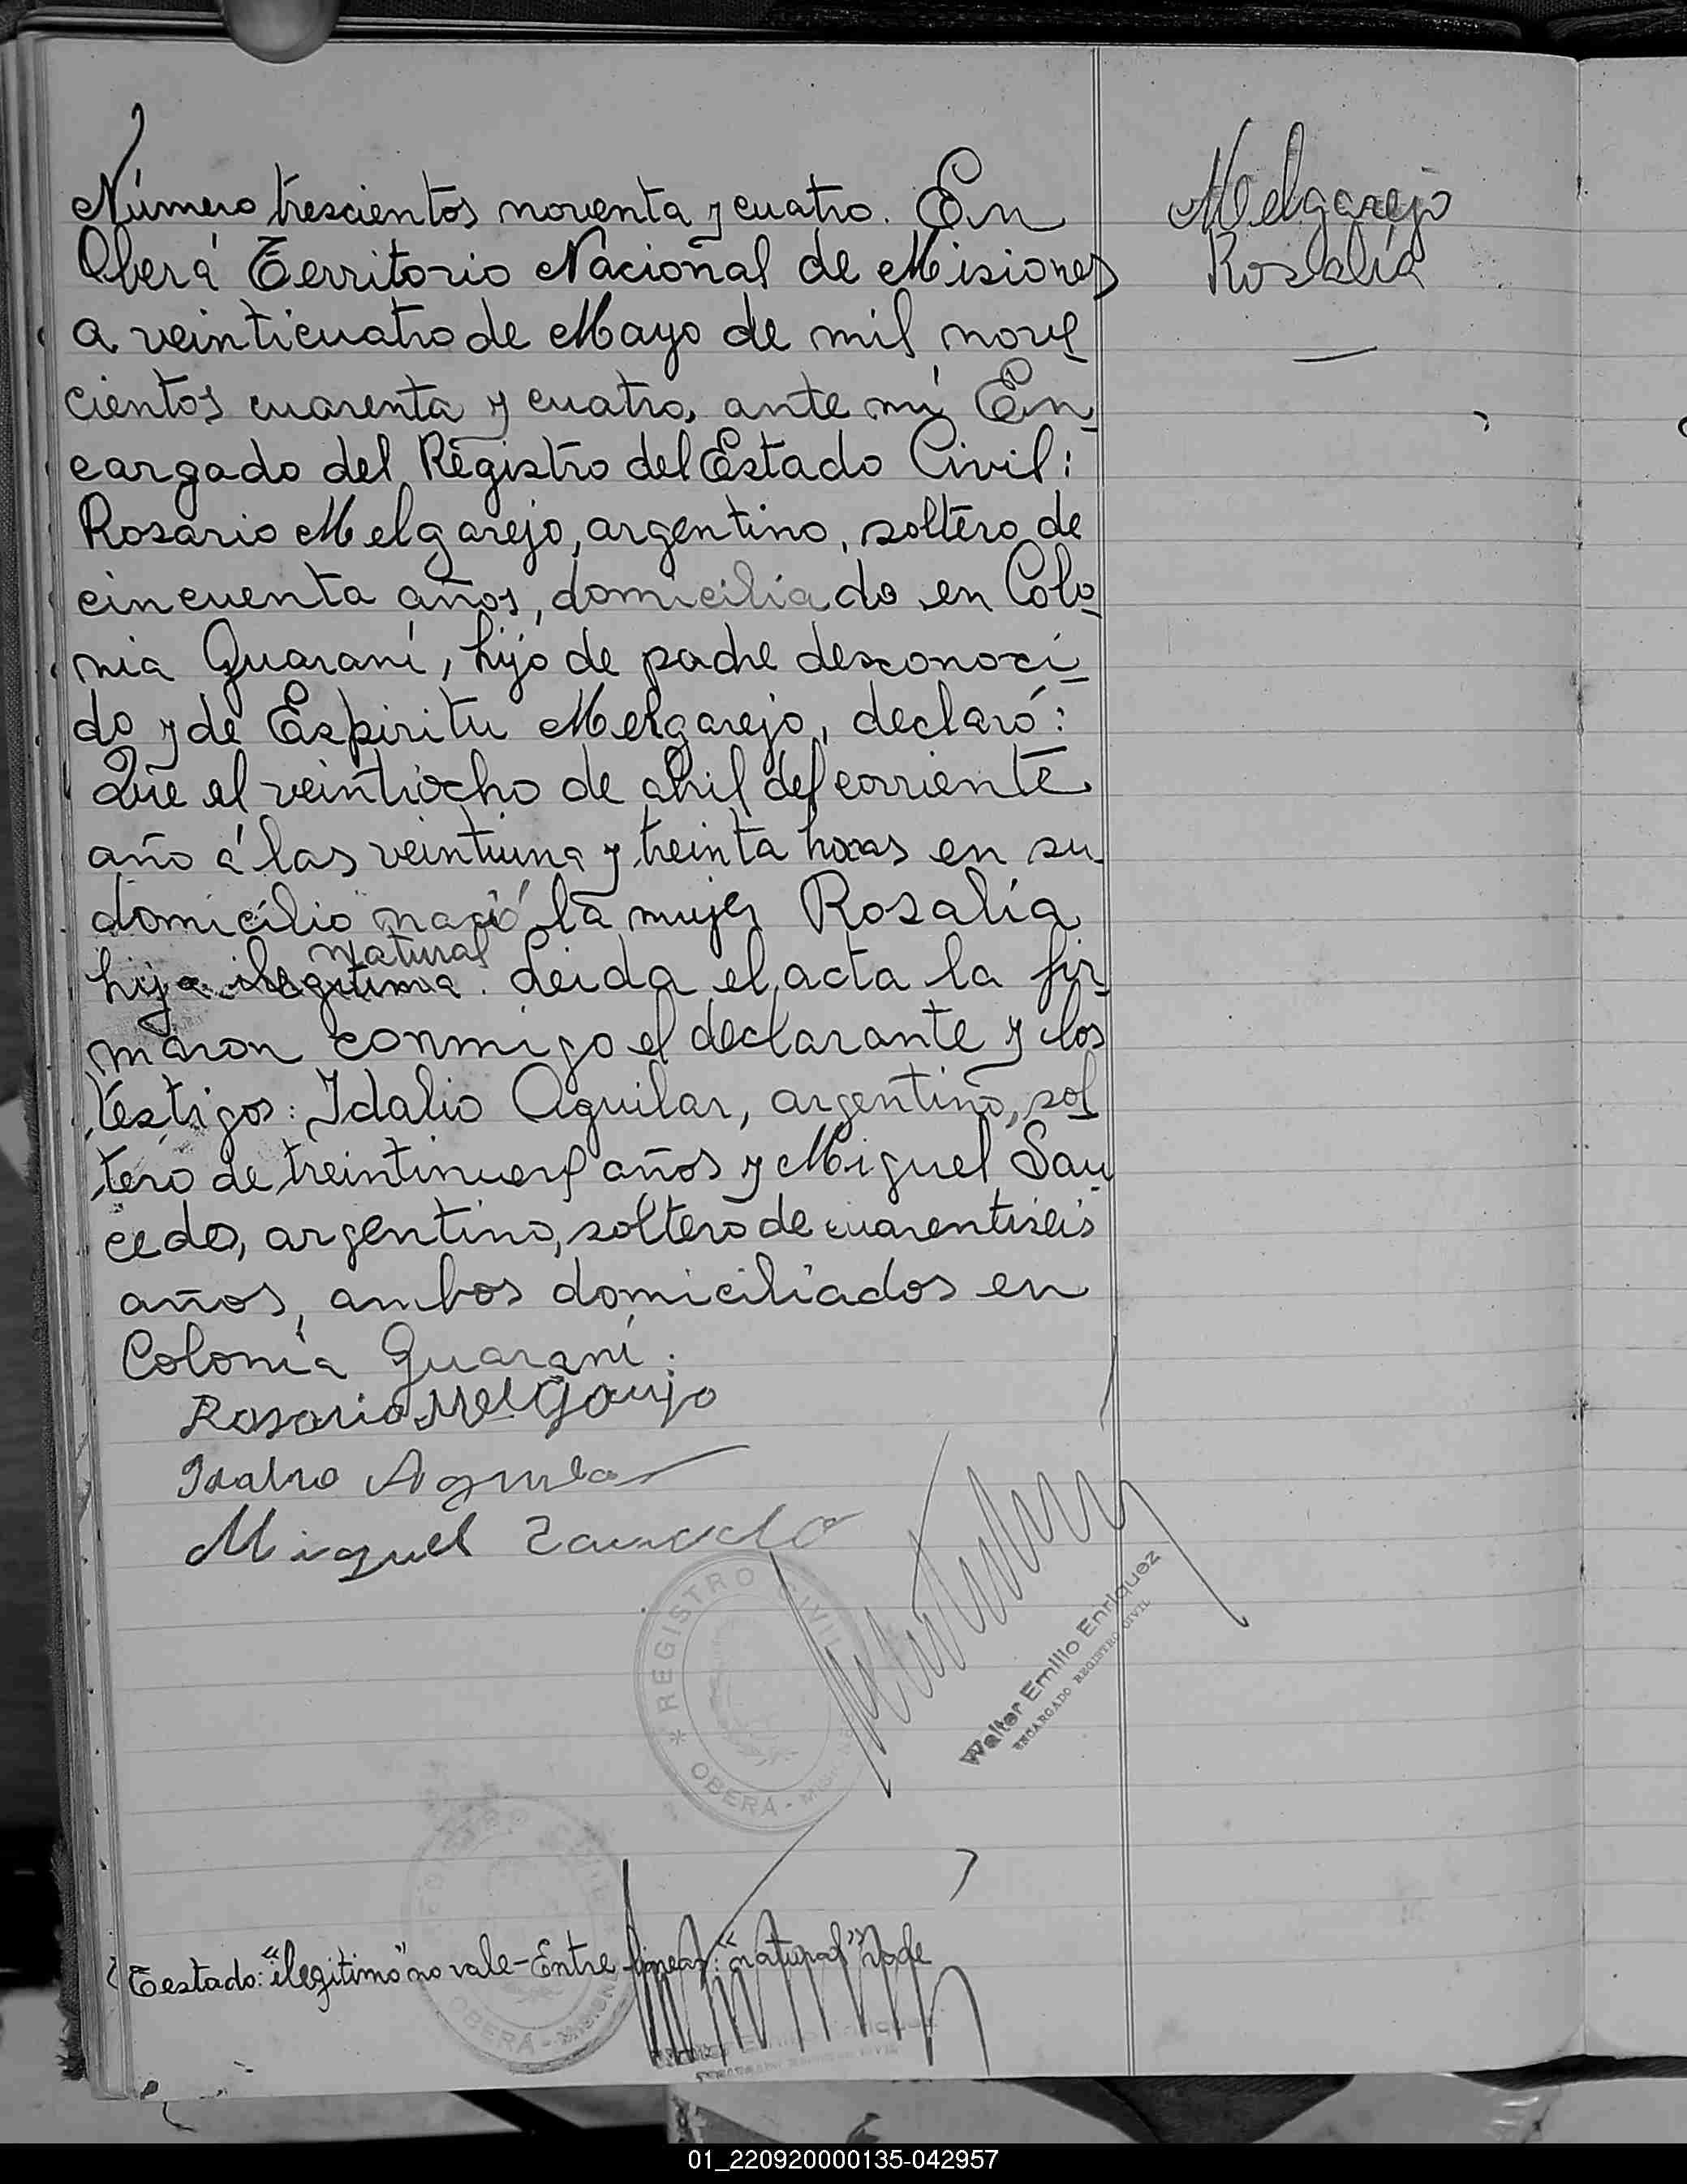 Número trescientos noventa y cuatro. En
Oberá Territorio Nacional de Misiones
a veinticuatro de Mayo de mil nove
cientos cuarenta y cuatro, ante mí En
cargado del Registro del Estado Civil:
Rosario Melgarejo, argentino, soltero de
cincuenta años, domiciliado en Colo
nia Guaraní, hijo de padre desconoci
do y de Espiritu Melgarejo, declaró:
Que el veintiocho de abril del corriente
año á las veintiuna y treinta horas en su
domicilio nació la mujer Rosalía
natural
hija ilegitima. Leida el acta la fir
maron conmigo el declarante y los
testigos: Idalio Aguilar, argentino, sol
tero de treintinueve años y Miguel Sau
cedo, argentino, soltero de cuarentiseis
años, ambos domiciliados en
Colonia Guaraní.
Melgarejo
Rosalía
Rosario Melgarejo
Idalio Aguilar
Miguel Saucedo
REGISTRO CIVIL
OBERÁ - MISIONES
Walter Emilio Enriquez
ENCARGADO REGISTRO CIVIL
Testado: "ilegitimo" no vale - Entre lineas: "natural" vale
OBERÁ - MISIONES
01_220920000135-042957